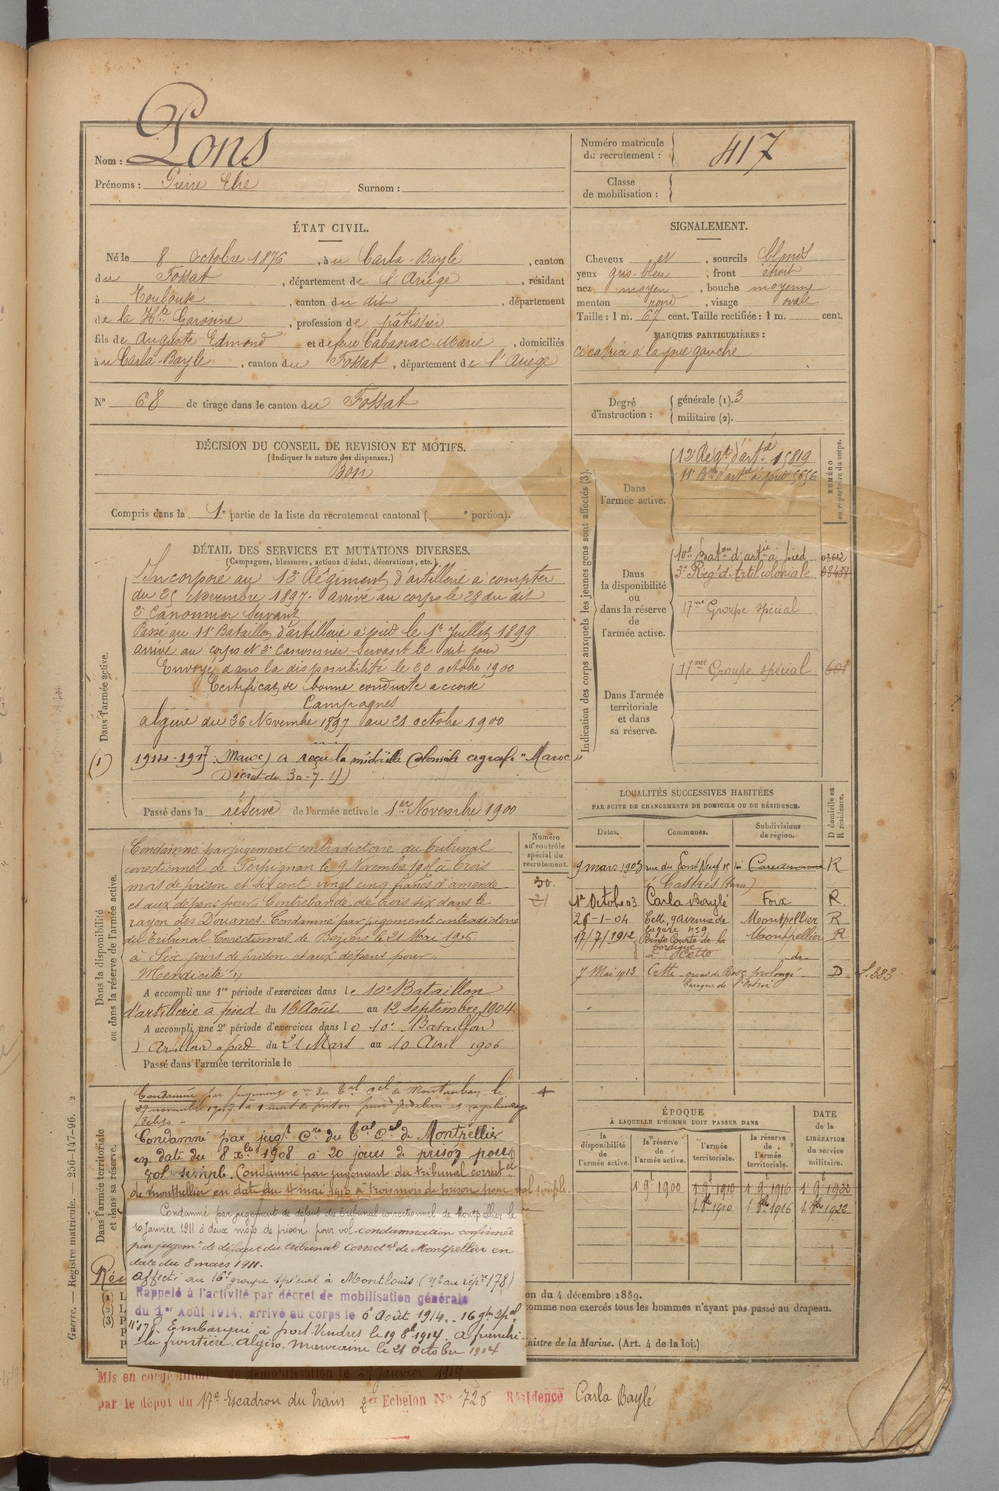 Nom : Pons
Prénoms : Pierre Elie Surnom :
Numéro matricule du recrutement : 417
Classe de mobilisation :
ÉTAT CIVIL.
Né le 8 octobre 1876, à u Carla-Bayle, canton
du Fossat, département de l'Ariège, résidant
à Toulouse, canton du dit, département
de la Hte Garonne, profession de pâtissier
fils de Auguste Edmond et de feue Cabannac Marie, domiciliés
à u Carla-Bayle, canton du Fossat, département de l'Ariège
N° 68 de tirage dans le canton du Fossat
SIGNALEMENT.
Cheveux et, sourcils blonds
yeux gris-bleu, front étroit
nez moyen, bouche moyenne
menton rond, visage ovale
Taille : 1 m. 67 cent. Taille rectifiée : 1 m. cent.
MARQUES PARTICULIÈRES :
cicatrice à la joue gauche
Degré d'instruction : générale (1). 3
militaire (2).
DÉCISION DU CONSEIL DE REVISION ET MOTIFS.
(Indiquer la nature des dispenses.)
Bon
Compris dans la 1e partie de la liste du recrutement cantonal ( e portion).
DÉTAIL DES SERVICES ET MUTATIONS DIVERSES.
(Campagnes, blessures, actions d'éclat, décorations, etc.)
Dans l'armée active.
Incorporé au 12e Régiment d'artillerie à compter
du 25 Novembre 1897. arrivé au corps le 28 du dit
2e Canonnier Servant
Passé au 11e Bataillon d'artillerie à pied le 1er Juillet 1899
arrivé au corps et 2e Canonnier Servant le dit jour
Envoyé dans la disponibilité le 30 octobre 1900
Certificat de bonne conduite accordé
Campagnes
algérie du 26 Novembre 1897 au 21 octobre 1900
(1) 1914-1917 : Maroc) a reçu la médaille Coloniale agrafe "Maroc"
Décret du 30-7-
Passé dans la réserve de l'armée active le 1er Novembre 1900
Indication des corps auxquels les jeunes gens sont affectés (3).
NUMÉRO au répertoire du corps.
Dans l'armée active.
12e Régt d'artie 15819
11e Bon d'artie à pied 5656
Dans la disponibilité ou dans la réserve de l'armée active.
10e Baton d'artie à pied
3e Régt d'Artil coloniale
17me Groupe spécial
Dans l'armée territoriale et dans sa réserve.
17me Groupe spécial 601
LOCALITÉS SUCCESSIVES HABITÉES
PAR SUITE DE CHANGEMENTS DE DOMICILE OU DE RÉSIDENCE.
Dates. Communes. Subdivisions de région. D domicile ou R résidence.
9 mars 1903 rue du Pont Neuf n° Carcassonne R
Castres (Tarn)
1er Octobre 03 Carla Baylé Foix R.
26-1-04 Cette, Montpellier R
n° 9
17/7/1912 Pointe Courte de la Montpellier R
Cette
7 Mai 1913 Cette prolongé do D
Dans la disponibilité ou dans la réserve de l'armée active.
Numéro au contrôle spécial du recrutement.
30
21
Condamné par jugement contradictoire du Tribunal
correctionnel de Perpignan le 9 Novembre à trois
mois de prison et six cent vingt cinq francs d'amende
et aux dépens pour Contrebande de trois six dans le
rayon des Douanes. Condamné par jugement contradictoire
du Tribunal Correctionnel de Béziers le 21 Mai 1905
à Six jours de prison et aux dépens pour
Mendicité
A accompli une 1re période d'exercices dans le 10e Bataillon
d'artillerie à pied du 16 Août au 12 Septembre 1904
A accompli une 2e période d'exercices dans le 10e Bataillon
d'Artillerie à pied du 21 Mars au 10 Avril 1906
Passé dans l'armée territoriale le
Dans l'armée territoriale et dans sa réserve.
Condamné par jugement cre du Tal cel de Montauban le
27 novembre 1907 à 1 mois de prison pour
Condamné par jugt Cre du Tal Cel de Montpellier
en date du 8 Xbre 1908 à 20 jours de prison pour
vol simple. Condamné par jugement du tribunal correctel
de Montpellier en date du 4 mai 1910 à trois mois de prison pour vol simple.
Condamné par jugement de défaut du tribunal correctionnel de Montpellier le
10 janvier 1911 à deux mois de prison pour vol condamnation confirmée
par jugemt de défaut du tribunal correctel de Montpellier en
date du 8 mars 1911.
Affecté au 16e groupe spécial à Montlouis (n° au répre 178)
Rappelé à l'activité par décret de mobilisation générale
du 1er Août 1914, arrivé au corps le 6 Août 1914. 16 gpe Spal
n° 178. Embarqué à Port-Vendres le 19 8bre 1914. A franchi
la frontière Algéro-Marocaine le 21 octobre 1914
ÉPOQUE
À LAQUELLE L'HOMME DOIT PASSER DANS
la disponibilité de l'armée active. la réserve de l'armée active. l'armée territoriale. la réserve de l'armée territoriale. DATE de la LIBÉRATION du service militaire.
1 9bre 1900 1 9bre 1910 1 9bre 1916 1 9bre 1922
1 8bre 1910 1 8bre 1916 1 8bre 1922
on du 4 décembre 1889.
omme non exercés tous les hommes n'ayant pas passé au drapeau.
inistre de la Marine. (Art. 4 de la loi.)
Mis en congé de démobilisation le janvier 1919
par le dépôt du 17e Escadron du Train 2me Echelon N° 726 Résidence Carla Baylé
Guerre. — Registre matricule. — 256-147-96. 2